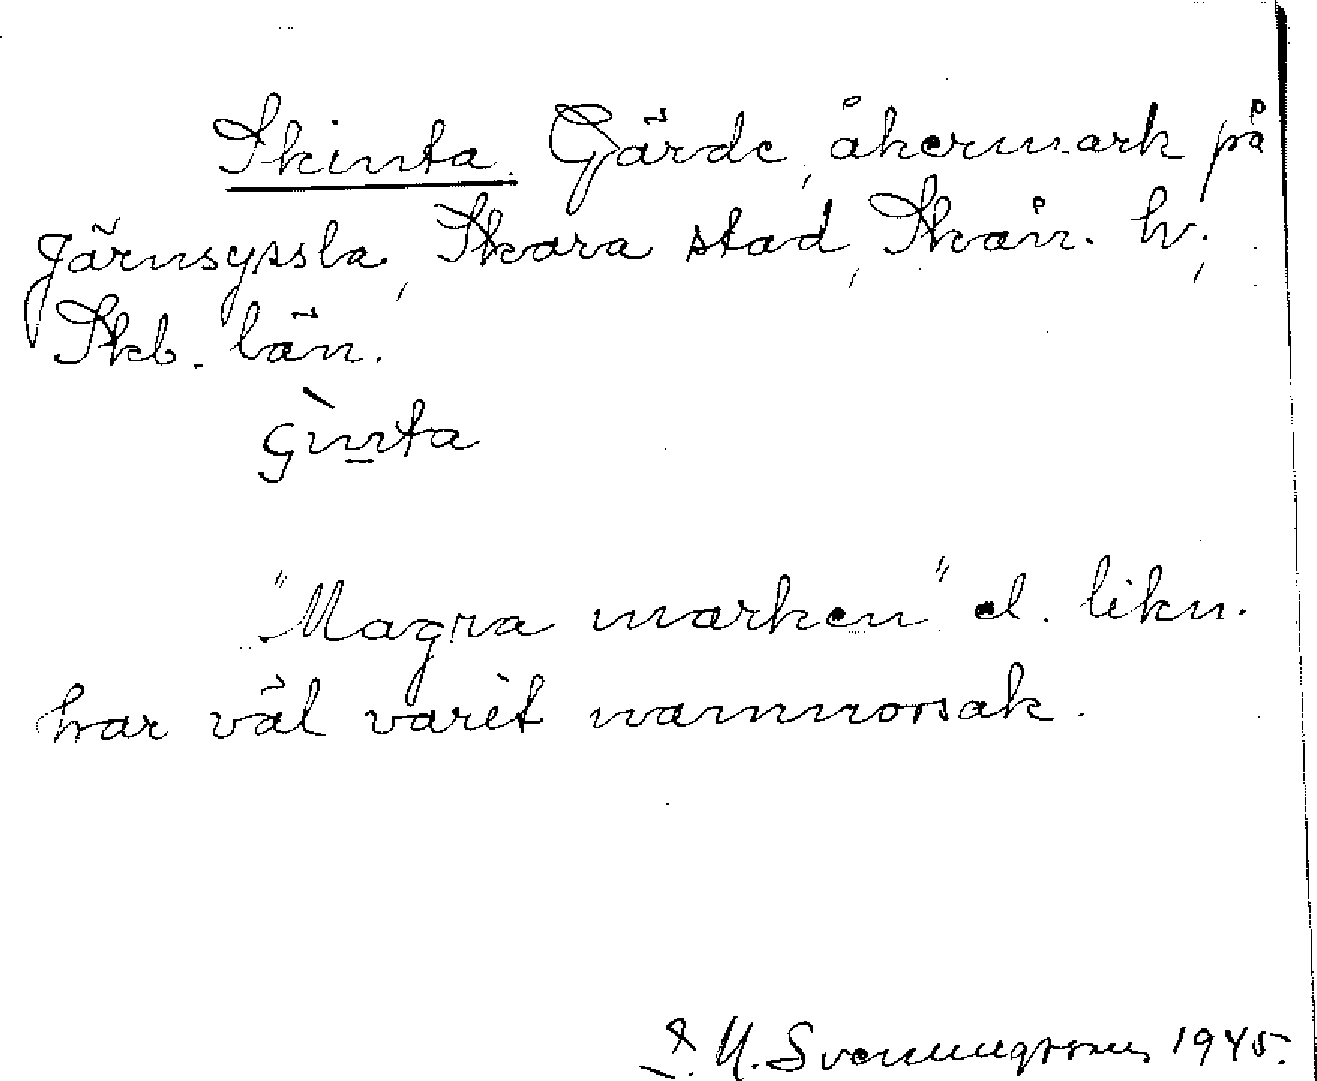 Skinta. Gärde, åkermark på
Järnsyssla, Skara stad, Skån. h.,
Skb. län.
"Magra marken" el. likn.
har väl varit namnorsak.
M. Svenungsson 1945.